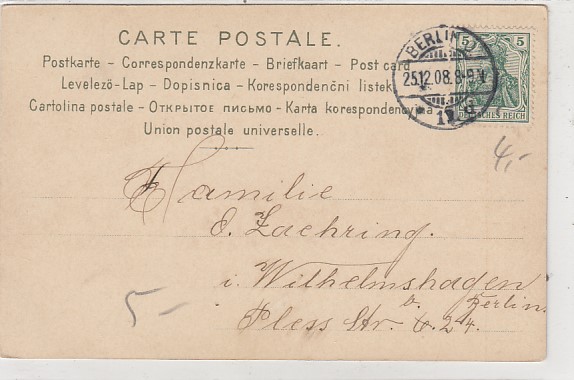 CARTE POSTALE.
Postkarte – Correspondenzkarte – Briefkaart – Post card
Levelező-Lap – Dopisnica – Korespondenční listek
Cartolina postale – Открытое письмо – Karta korespondencyjna
Union postale universelle.
BERLIN
25.12.08. 8-9 V
5 5
DEUTSCHES REICH
4,-
Familie
E. Zaehring.
i. Wilhelmshagen
b. Berlin.
Pless Str. 24.
5-